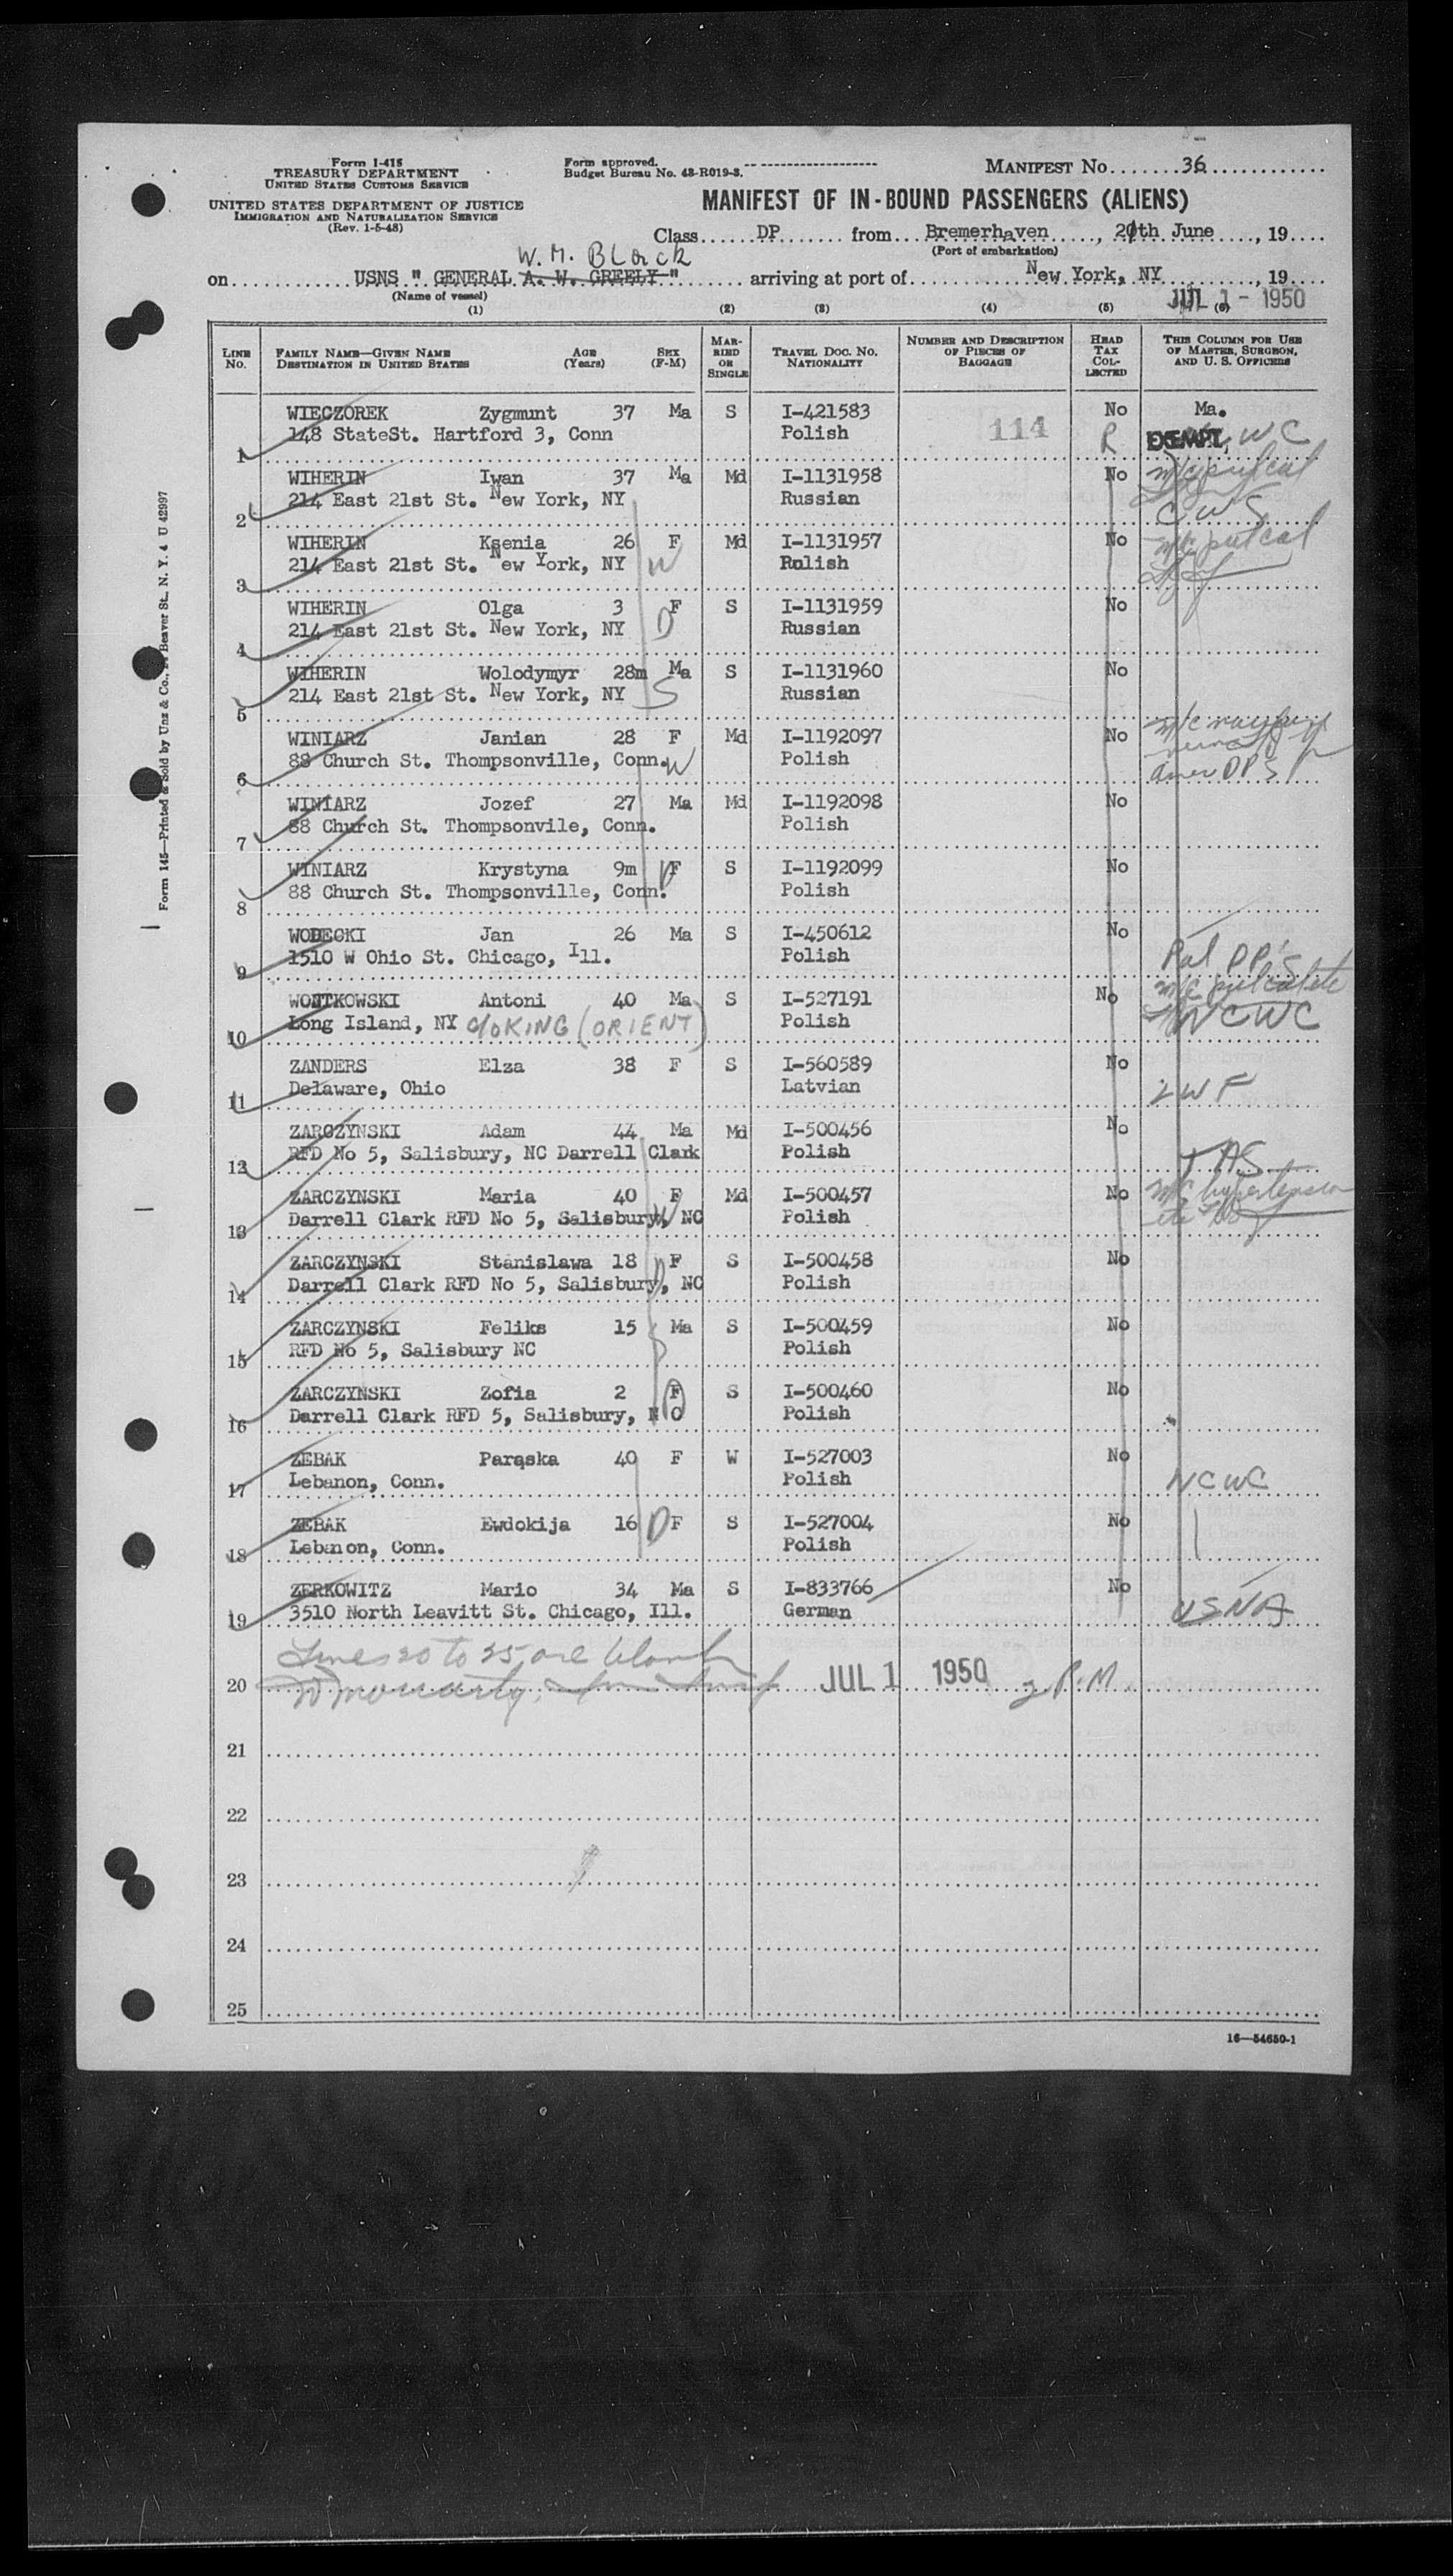 Form I-415
TREASURY DEPARTMENT
UNITED STATES CUSTOMS SERVICE
UNITED STATES DEPARTMENT OF JUSTICE
IMMIGRATION AND NATURALIZATION SERVICE
(Rev. 1-5-48)
Form approved.
Budget Bureau No. 43-R019-3.
MANIFEST No. 36
MANIFEST OF IN-BOUND PASSENGERS (ALIENS)
Class DP from Bremerhaven, 20th June, 19
(Port of embarkation)
W. M. BLACK
on USNS " GENERAL A. W. GREELY " arriving at port of New York, NY, 19
(Name of vessel)
JUL 1 - 1950
(1) (2) (3) (4) (5) (6)
LINE No. FAMILY NAME—GIVEN NAME DESTINATION IN UNITED STATES AGE (Years) SEX (F-M) MARRIED OR SINGLE TRAVEL DOC. NO. NATIONALITY NUMBER AND DESCRIPTION OF PIECES OF BAGGAGE HEAD TAX COLLECTED THIS COLUMN FOR USE OF MASTER, SURGEON, AND U. S. OFFICERS
WIECZOREK Zygmunt 37 Ma S I-421583 No Ma.
1 148 StateSt. Hartford 3, Conn Polish 114 R EXEMPT WC
WIHERIN Iwan 37 Ma Md I-1131958 No
2 214 East 21st St. New York, NY Russian CWS
WIHERIN Ksenia 26 F Md I-1131957 No
3 214 East 21st St. New York, NY W Polish
WIHERIN Olga 3 F S I-1131959 No
4 214 East 21st St. New York, NY D Russian
WIHERIN Wolodymyr 28m Ma S I-1131960 No
5 214 East 21st St. New York, NY S Russian
WINIARZ Janian 28 F Md I-1192097 No
6 88 Church St. Thompsonville, Conn. W Polish Amer DP'S
WINIARZ Jozef 27 Ma Md I-1192098 No
7 88 Church St. Thompsonvile, Conn. Polish
WINIARZ Krystyna 9m D F S I-1192099 No
8 88 Church St. Thompsonville, Conn. Polish
WODECKI Jan 26 Ma S I-450612 No
9 1510 W Ohio St. Chicago, Ill. Polish Pal DP'S
WOJTKOWSKI Antoni 40 Ma S I-527191 No
10 Long Island, NY C/O KING (ORIENT) Polish NCWC
ZANDERS Elza 38 F S I-560589 No
11 Delaware, Ohio Latvian LWF
ZARCZYNSKI Adam 44 Ma Md I-500456 No
12 RFD No 5, Salisbury, NC Darrell Clark Polish
ZARCZYNSKI Maria 40 F Md I-500457 No m/c hypertension
13 Darrell Clark RFD No 5, Salisbury, NC W Polish
ZARCZYNSKI Stanislawa 18 D F S I-500458 No
14 Darrell Clark RFD No 5, Salisbury, NC Polish
ZARCZYNSKI Feliks 15 Ma S I-500459 No
15 RFD No 5, Salisbury NC S Polish
ZARCZYNSKI Zofia 2 F D S I-500460 No
16 Darrell Clark RFD 5, Salisbury, N C Polish
ZEBAK Paraska 40 F W I-527003 No
17 Lebanon, Conn. Polish NCWC
ZEBAK Ewdokija 16 D F S I-527004 No
18 Lebanon, Conn. Polish
ZERKOWITZ Mario 34 Ma S I-833766 No
19 3510 North Leavitt St. Chicago, Ill. German USNA
Lines 20 to 25 are blank
20 W Moriarty, JUL 1 1950 2 P.M.
21
22
23
24
25
16—54650-1
Form 145—Printed & Sold by Unz & Co., Beaver St., N. Y. 4 U 42997